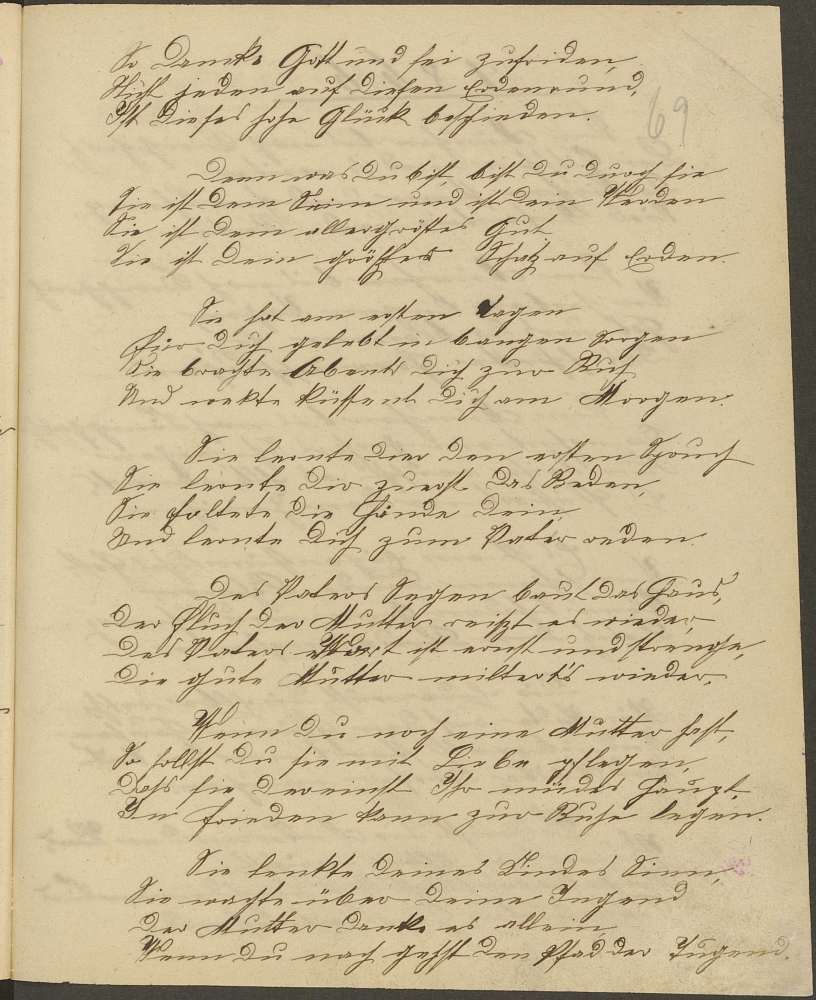 So Danke Gott und sei zufriden,
Nicht jeden auf diesen Erdenrund,
Ist dieses hohe Glück beschieden.
69
Denn was Du bist, bist Du durch sie
Sie ist Dein Seim und ist Dein Werden
Sie ist Dein allergröstes Gut
Sie ist Dein größter Schatz auf Erden.
Sie hat am ersten Tagen
Für Dich gelebt in bangen Sorgen
Sie brachte Abents Dich zur Ruh
Und wekte küssent Dich am Morgen.
Sie lernte Dier den ersten Spruch
Sie lernte Dir zuerst das Beden,
Sie faltete die Hände Dein,
Und lernte Dich zum Vater reden.
Des Vaters Segen baut das Haus,
Der Fluch der Mutter reißt es nieder,
Des Vaters Wort ist ernst und strenge,
Die gute Mutter miltert's wieder.
Wenn Du noch eine Mutter hast,
So sollst Du sie mit Liebe pflegen,
Dass sie dereinst Ihr müdes Haupt,
In Frieden kann zur Ruhe legen.
Sie lenkte Deines Kindes Sinn,
Sie wachte über Deine Jugend
Der Mutter Danke es allein,
Wenn Du nach gehst den Pfad der Tugend.